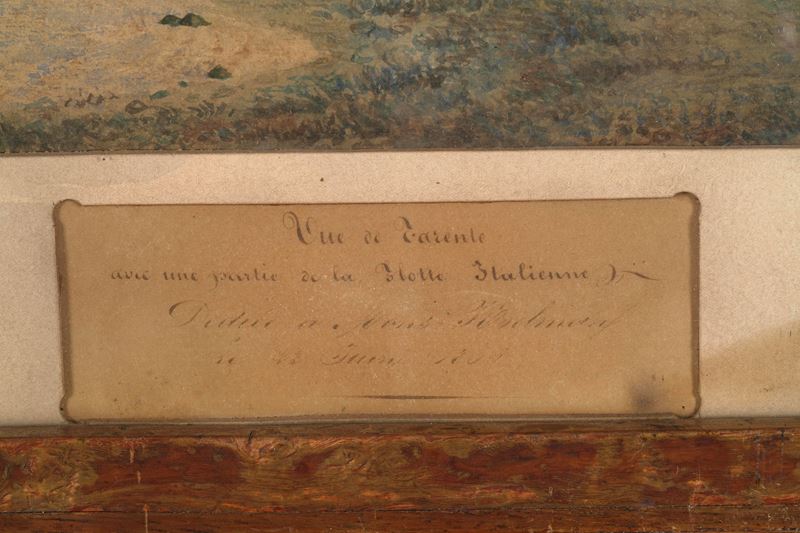 Vue de Tarente
avec une partie de la Flotte Italienne
Dédiée a Mons
Juin